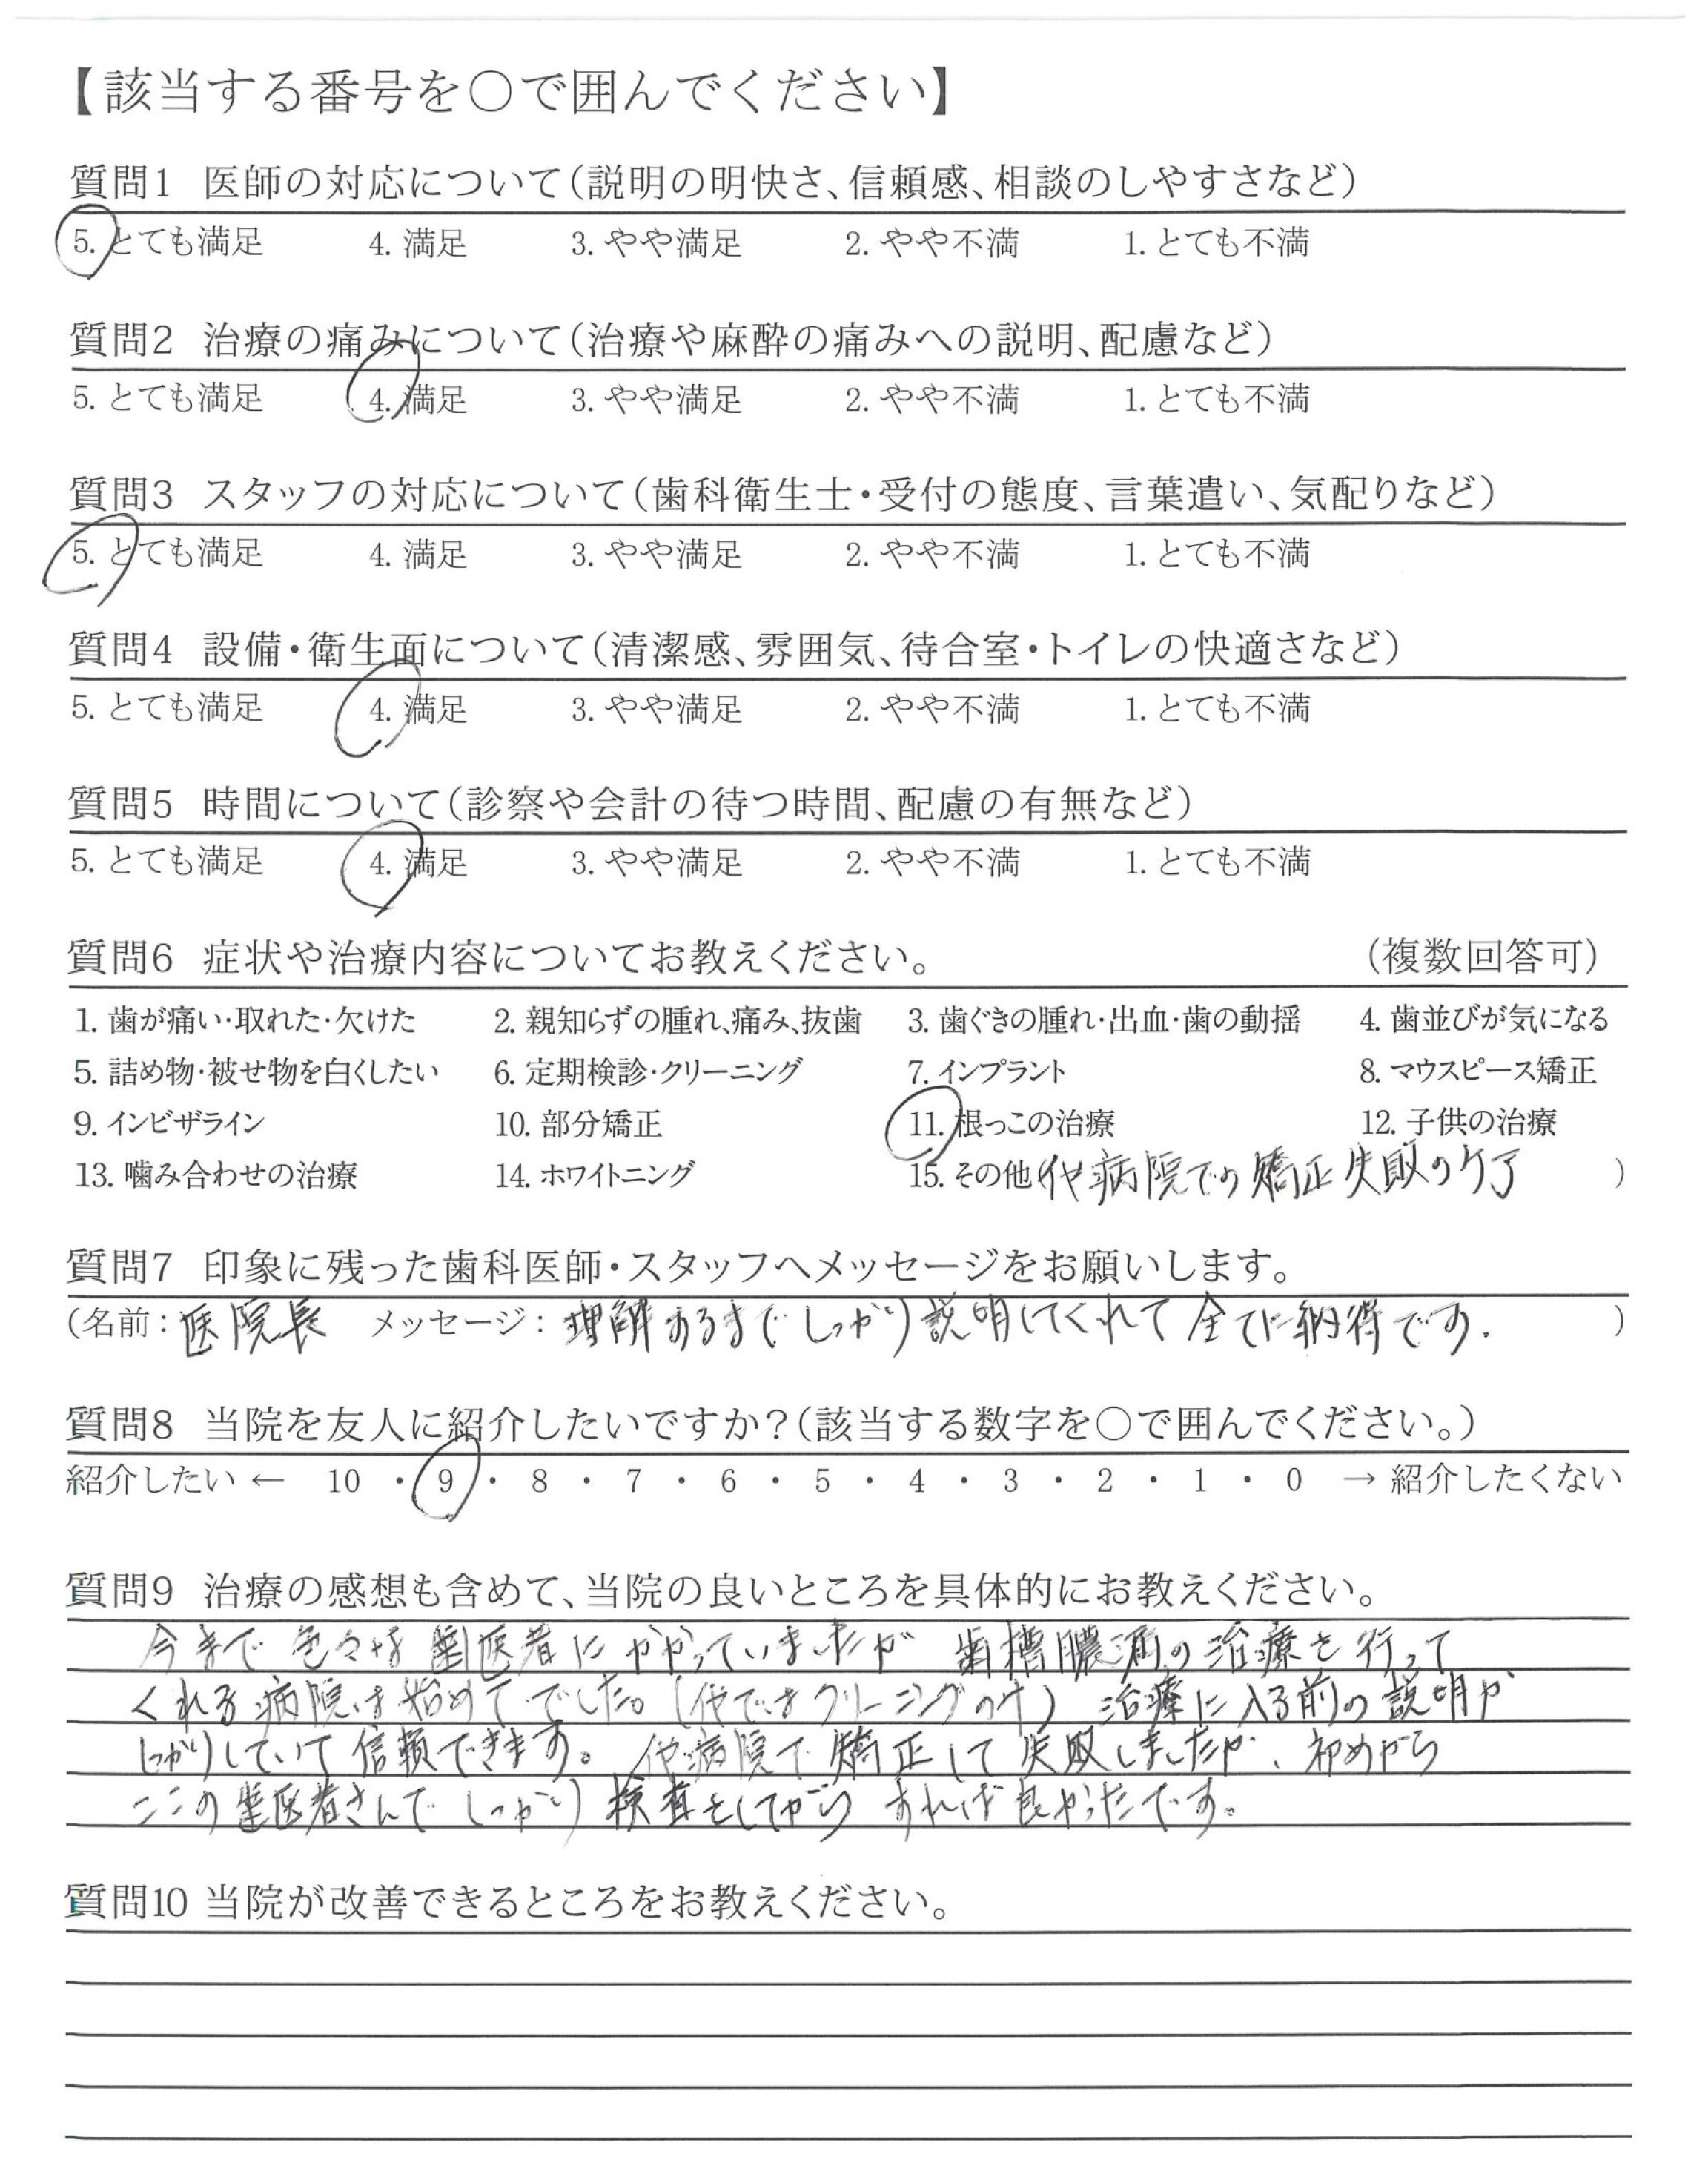 【該当する番号を○で囲んでください】
質問1 医師の対応について(説明の明快さ、信頼感、相談のしやすさなど)
5. とても満足 4. 満足 3. やや満足 2. やや不満 1. とても不満
質問2 治療の痛みについて(治療や麻酔の痛みへの説明、配慮など)
5. とても満足 4. 満足 3. やや満足 2. やや不満 1. とても不満
質問3 スタッフの対応について(歯科衛生士・受付の態度、言葉遣い、気配りなど)
5. とても満足 4. 満足 3. やや満足 2. やや不満 1. とても不満
質問4 設備・衛生面について(清潔感、雰囲気、待合室・トイレの快適さなど)
5. とても満足 4. 満足 3. やや満足 2. やや不満 1. とても不満
質問5 時間について(診察や会計の待つ時間、配慮の有無など)
5. とても満足 4. 満足 3. やや満足 2. やや不満 1. とても不満
質問6 症状や治療内容についてお教えください。 (複数回答可)
1. 歯が痛い・取れた・欠けた 2. 親知らずの腫れ、痛み、抜歯 3. 歯ぐきの腫れ・出血・歯の動揺 4. 歯並びが気になる
5. 詰め物・被せ物を白くしたい 6. 定期検診・クリーニング 7. インプラント 8. マウスピース矯正
9. インビザライン 10. 部分矯正 11. 根っこの治療 12. 子供の治療
13. 噛み合わせの治療 14. ホワイトニング 15. その他(他病院での矯正失敗のケア )
質問7 印象に残った歯科医師・スタッフへメッセージをお願いします。
(名前：医院長 メッセージ：理解あるまでしっかり説明してくれて全てに納得です. )
質問8 当院を友人に紹介したいですか？(該当する数字を○で囲んでください。)
紹介したい ← 10 ・ 9 ・ 8 ・ 7 ・ 6 ・ 5 ・ 4 ・ 3 ・ 2 ・ 1 ・ 0 → 紹介したくない
質問9 治療の感想も含めて、当院の良いところを具体的にお教えください。
今まで色々な歯医者にかかっていましたが 歯槽膿漏の治療を行って
くれる病院は始めてでした。(他ではクリーニングのみ) 治療に入る前の説明が
しっかりしていて信頼できます。他病院で矯正して失敗しましたが、初めから
ここの歯医者さんでしっかり検査をしてからすれば良かったです。
質問10 当院が改善できるところをお教えください。